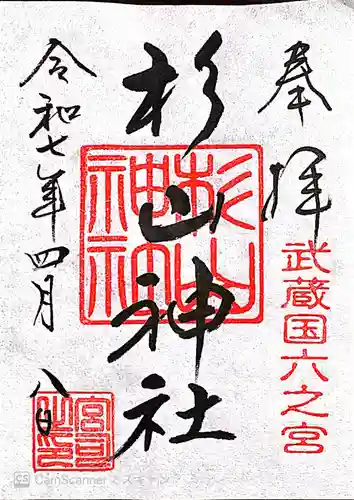 奉拝
武蔵国六之宮
杉山神社
杉山神社
令和七年四月八日
CS CamScanner でスキャン